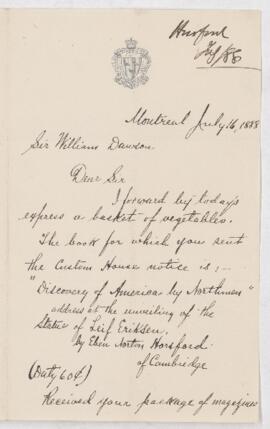 Horsford
July/88
Montreal July 16, 1888
Sir William Dawson
Dear Sir
I forward by today's
express a basket of vegetables.
The book for which you sent
the Custom House notice is:—
"Discovery of America by Northmen"
address at the unveiling of the
Statue of Leif Eriksen.
By Eben Norton Horsford
of Cambridge
(Duty 60¢)
Received your package of magazines